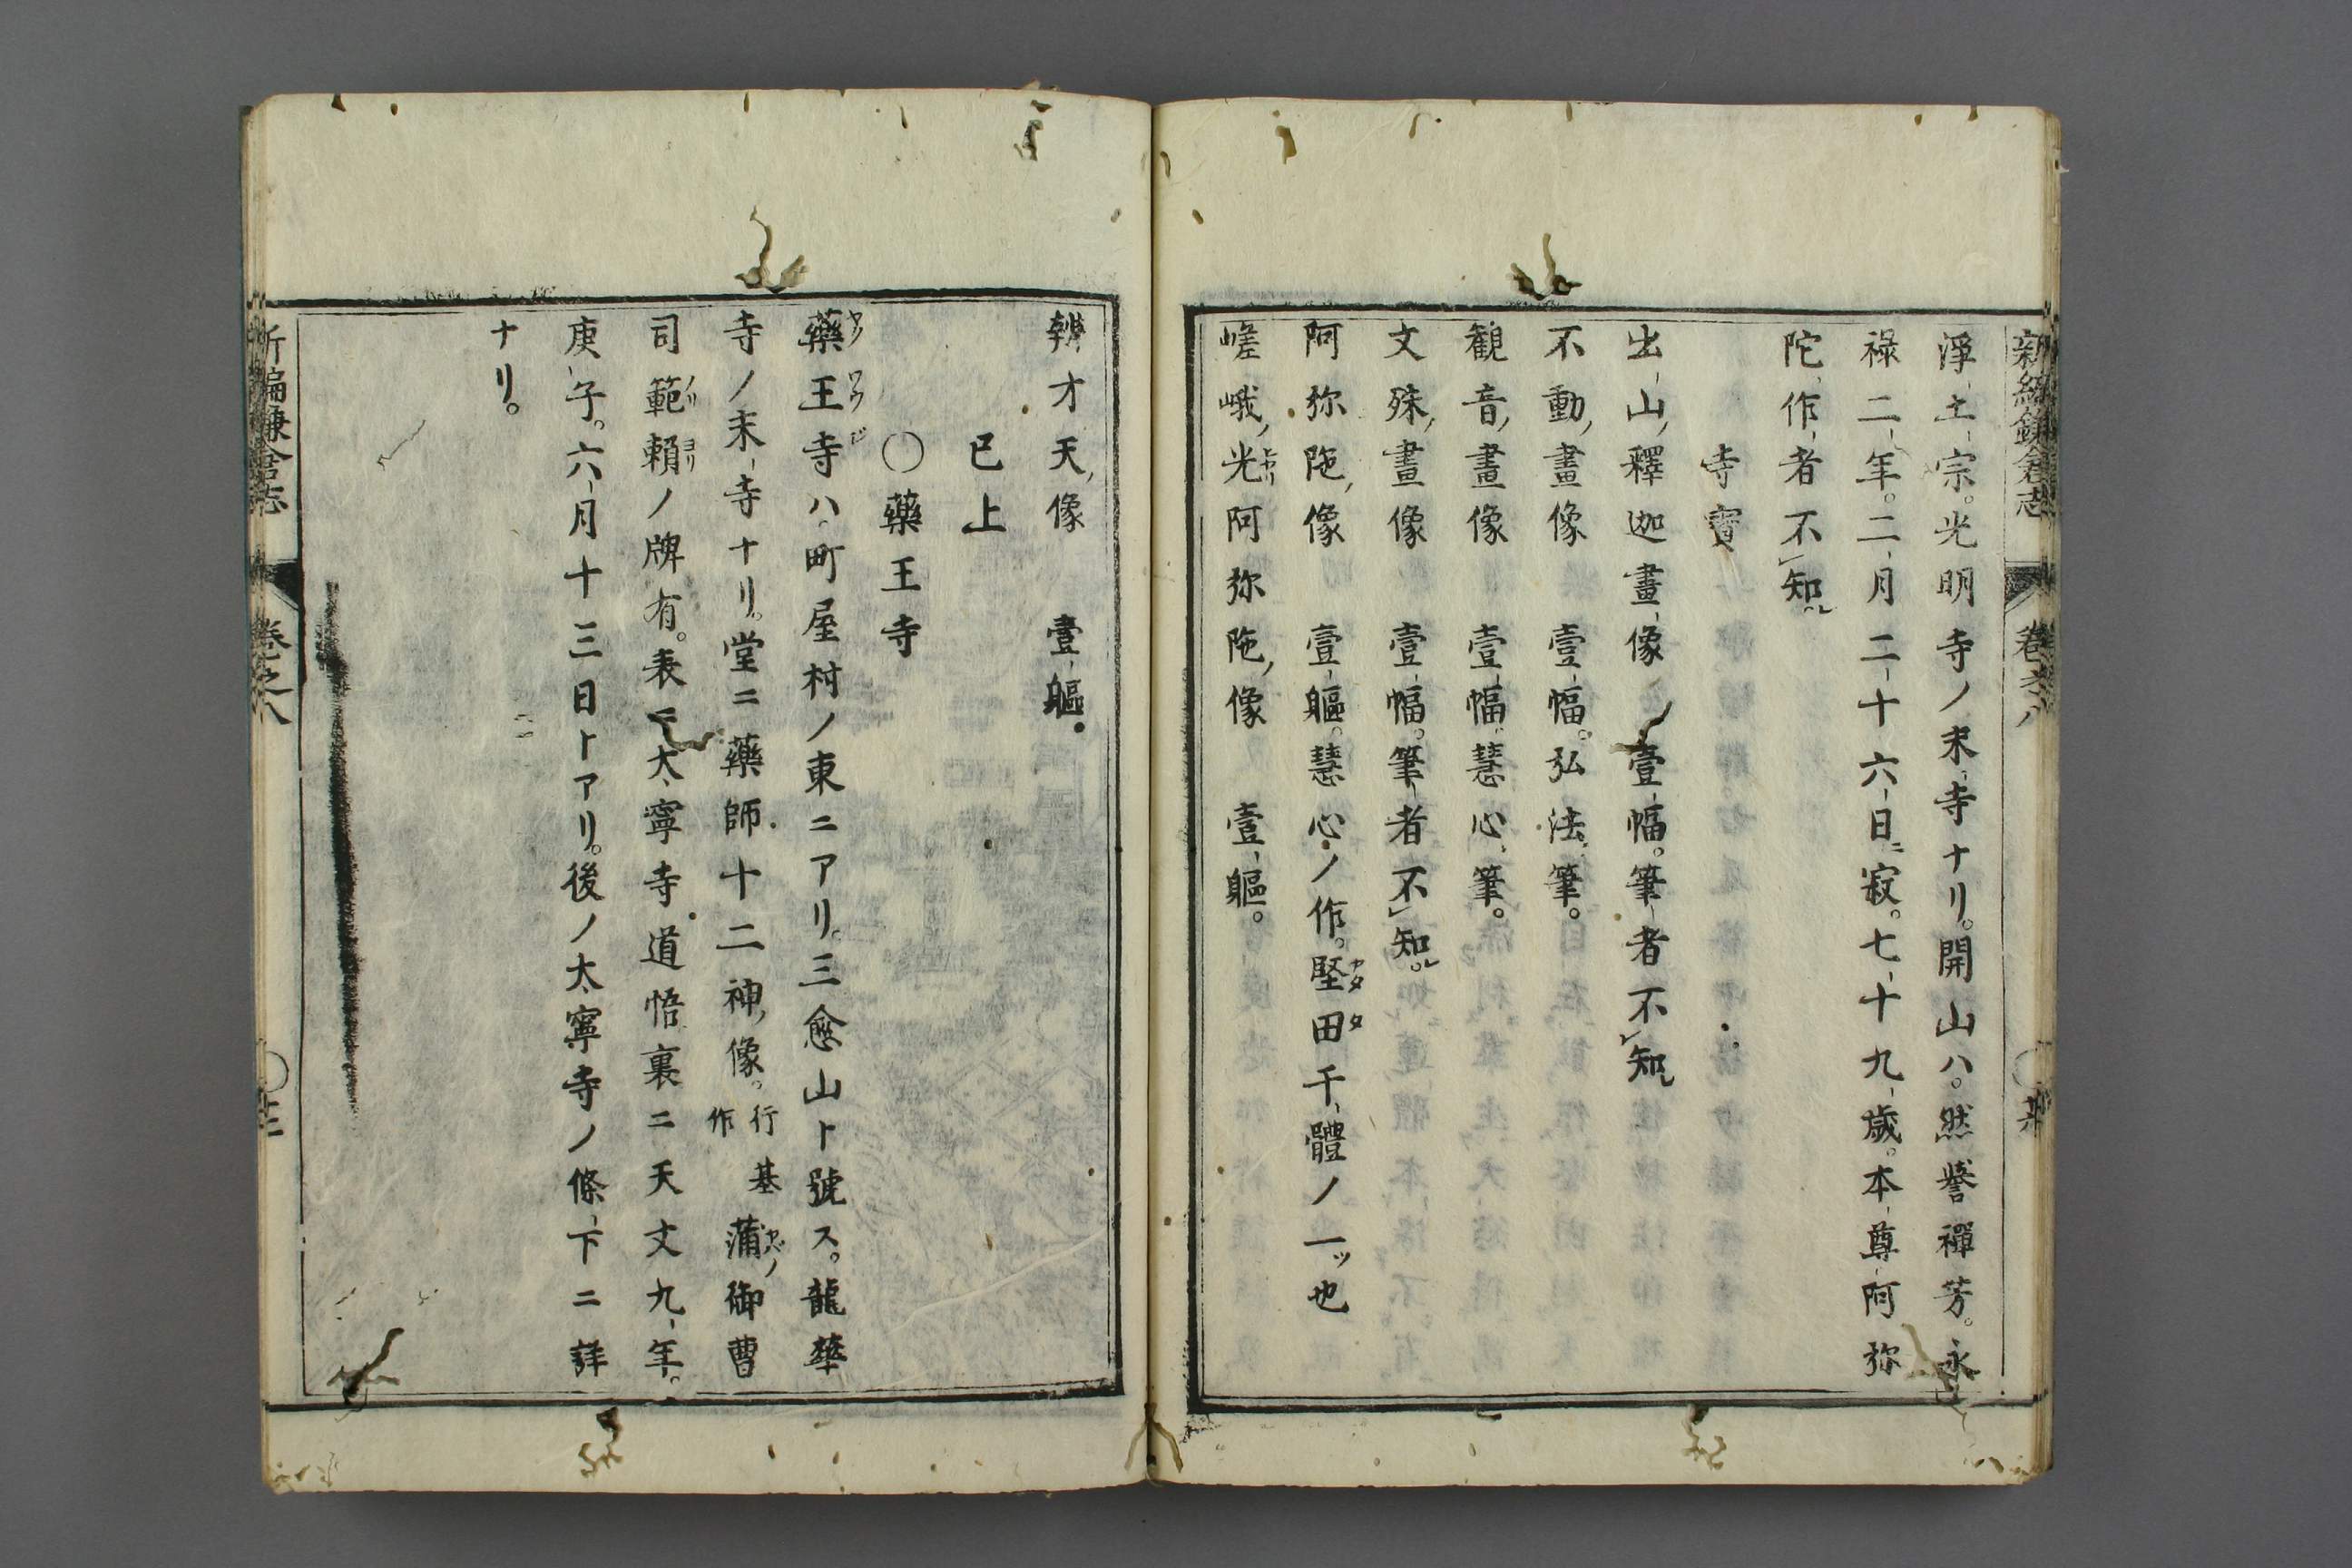 新編鎌倉志　卷之八
淨土宗。光明寺ノ末寺ナリ。開山ハ。然譽禪芳。永
祿二年。二月二十六日ニ寂。七十九歲。本尊阿弥
陀、作者不㆑知。
寺寶
出山ノ釋迦畫像　壹幅。筆者不㆑知
不動ノ畫像　壹幅。弘法ノ筆。
観音ノ畫像　壹幅。慧心ノ筆。
文殊ノ畫像　壹幅。筆者不㆑知。
阿弥陁ノ像　壹軀。慧心ノ作。堅田千體ノ一ツ也
嵯峨ノ光阿弥陁ノ像　壹軀。
辨才天ノ像　壹軀。
已上
〇藥王寺
藥王寺ハ町屋村ノ東ニアリ。三愈山ト號ス。龍華
寺ノ末寺ナリ。堂ニ藥師十二神ノ像。行基作 蒲御曹
司範賴ノ牌有。表ニ太寧寺道悟裏ニ天文九年。
庚子。六月十三日トアリ。後ノ太寧寺ノ條下ニ詳
ナリ。
新編鎌倉志　卷之八